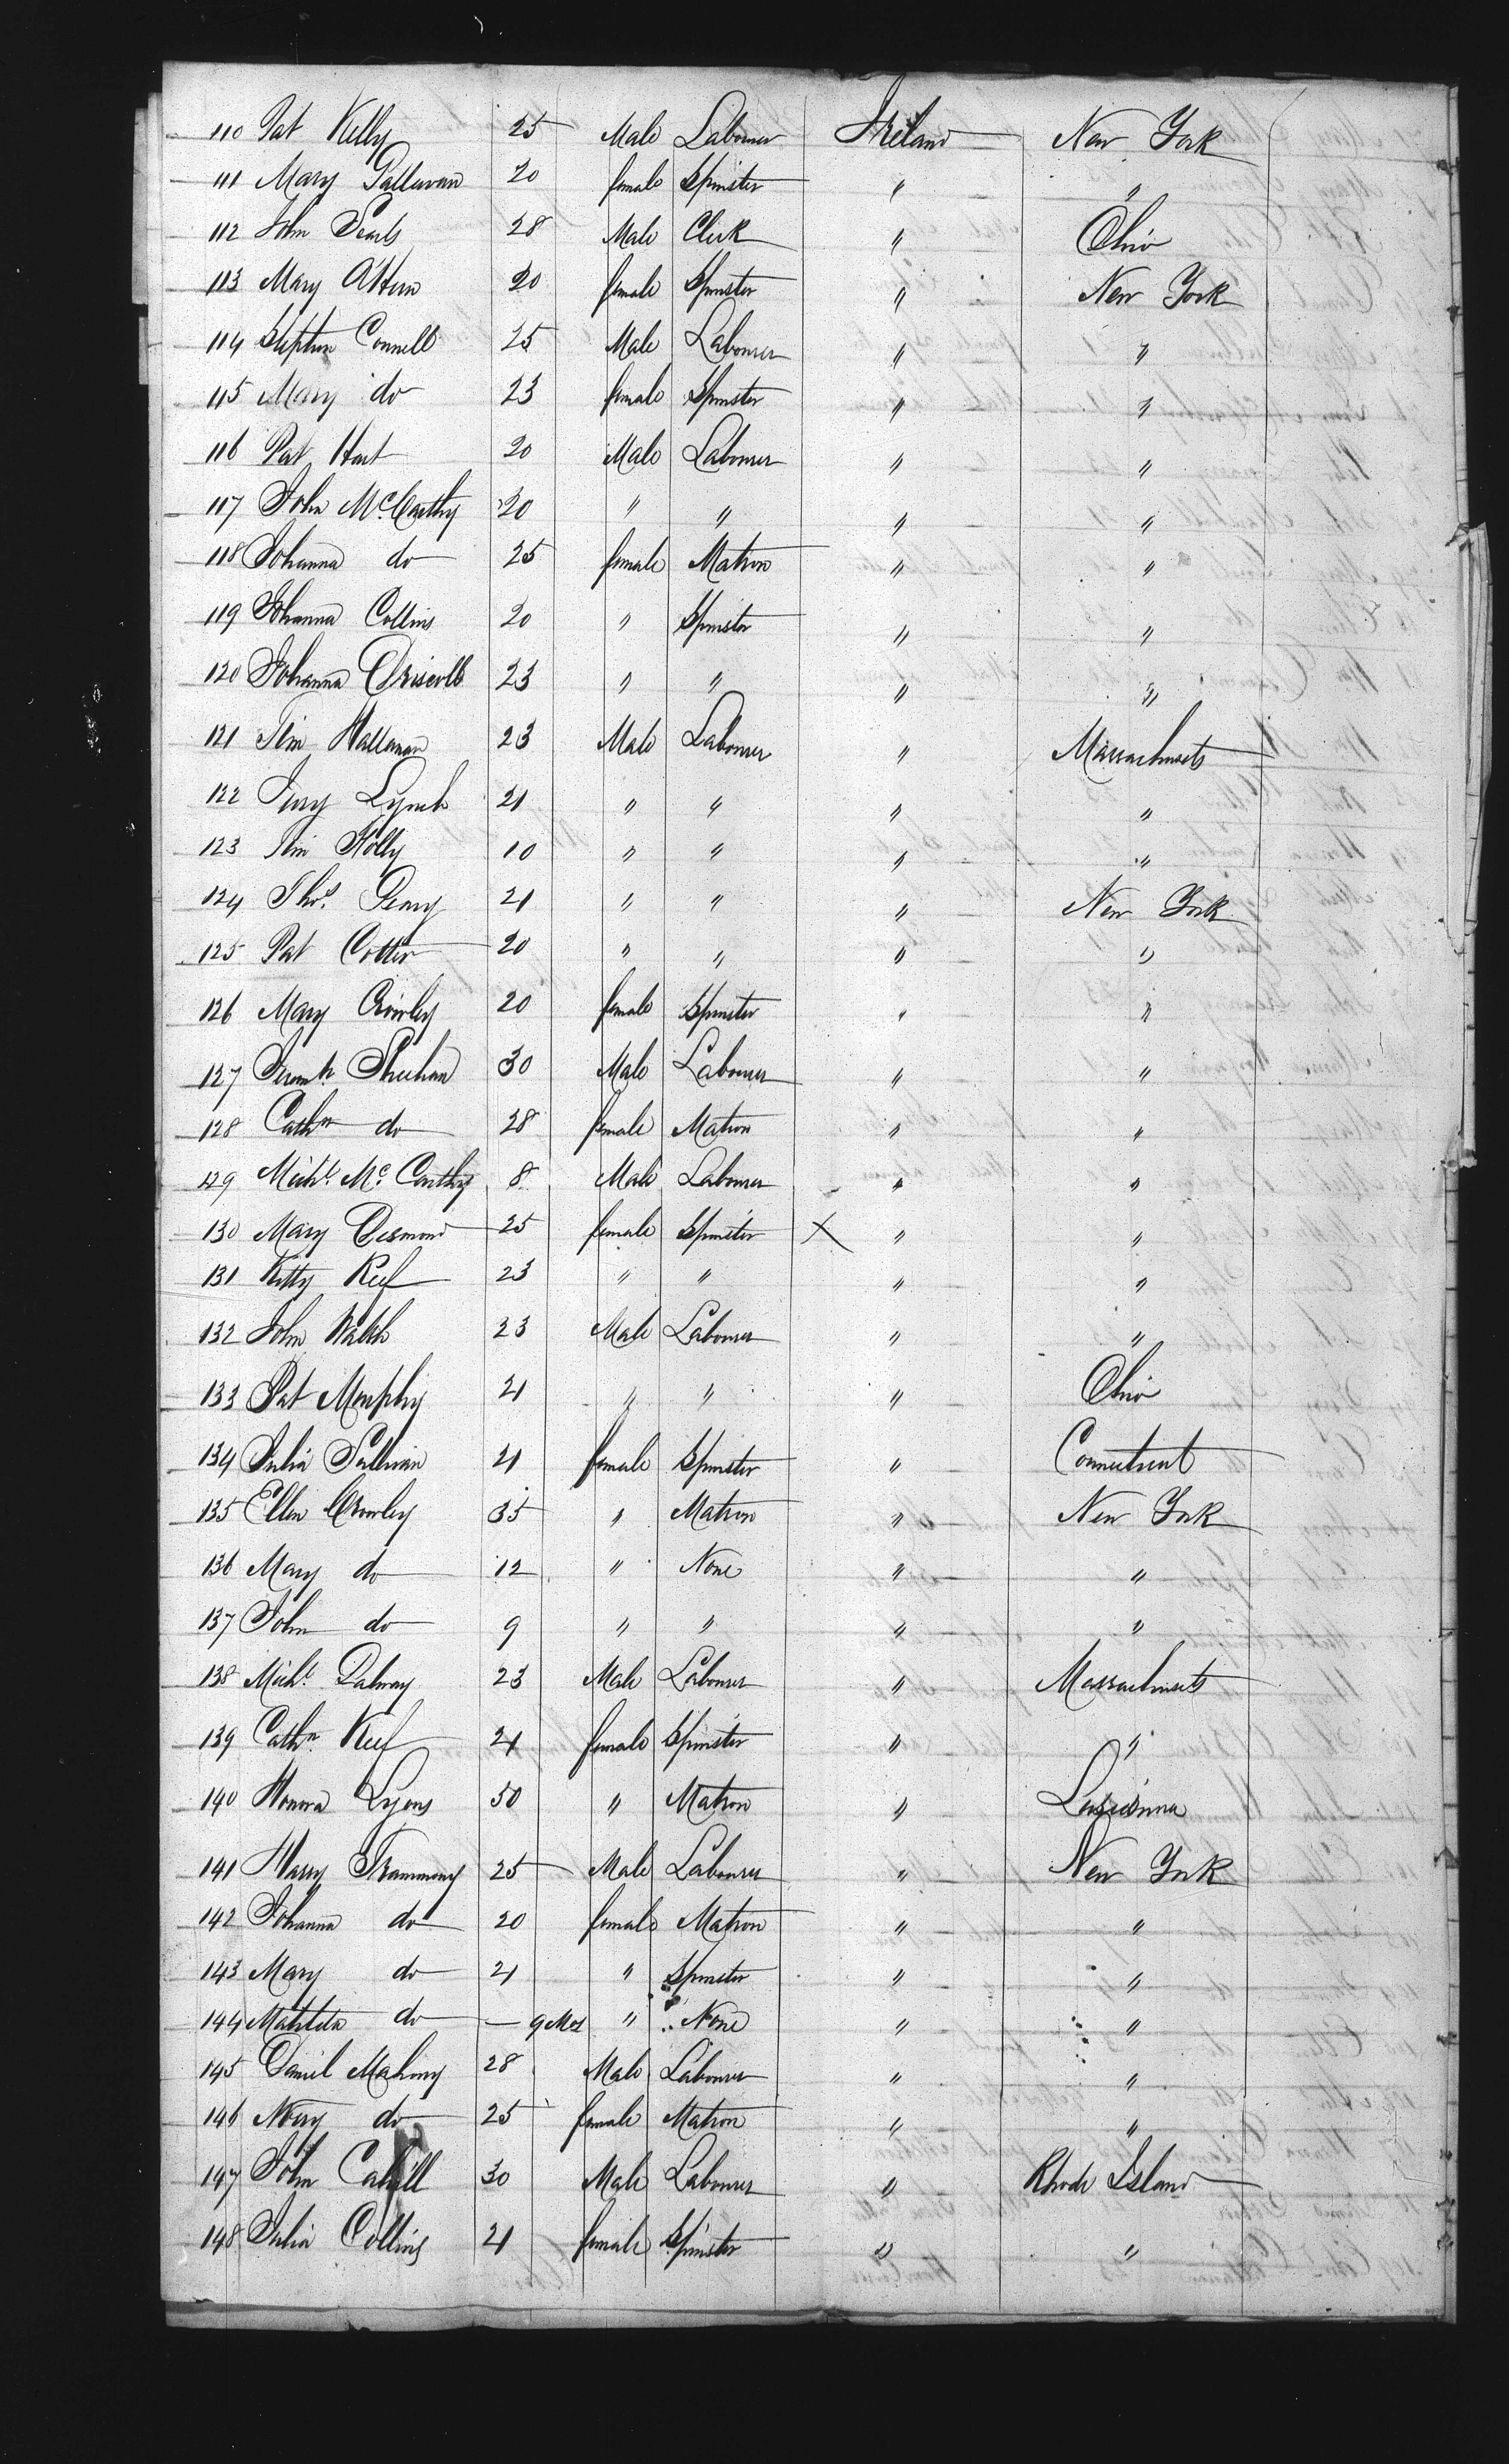 110 Pat Kelly 25 Male Labourer Ireland New York
111 Mary Gallivan 20 female Spinster " "
112 John Searls 28 Male Clerk " Ohio
113 Mary 20 female Spinster " New York
114 Stephen Connell 25 Male Labourer " "
115 Mary do 23 female Spinster " "
116 Pat Hart 20 Male Labourer " "
117 John McCarthy 20 " " " "
118 Johanna do 25 female Matron " "
119 Johanna Collins 20 " Spinster " "
120 Johanna Driscoll 23 " " " "
121 Tim Hallanan 23 Male Labourer " Massachusets
122 Jerry Lynch 21 " " " "
123 Tim Holly 10 " " " "
124 Thos. Geary 21 " " " New York
125 Pat Cotter 20 " " " "
126 Mary Crowley 20 female Spinster " "
127 Sheehan 30 Male Labourer " "
128 Cathn do 28 female Matron " "
129 Michl. McCarthy 8 Male Labourer " "
130 Mary Desmond 25 female Spinster X " "
131 Kitty Keef 23 " " " "
132 John Walsh 23 Male Labourer " "
133 Pat Murphy 21 " " " Ohio
134 Julia Sullivan 21 female Spinster " Connecticut
135 Ellen Crowley 35 " Matron " New York
136 Mary do 12 " None " "
137 John do 9 " " " "
138 Michl. 23 Male Labourer " Massachusets
139 Cathn. Keef 21 female Spinster " "
140 Honora Lyons 50 " Matron " Louisiana
141 Harry 25 Male Labourer " New York
142 Johanna do 20 female Matron " "
143 Mary do 21 " Spinster " "
144 do — 9 Mos " None " "
145 Daniel Mahony 28 Male Labourer " "
146 Nory do 25 female Matron " "
147 John Cahill 30 Male Labourer " Rhode Island
148 Julia Collins 21 female Spinster " "